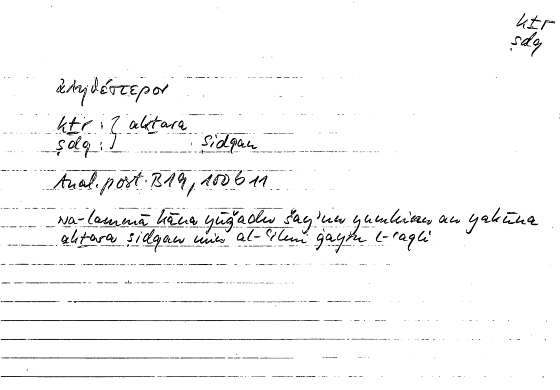 kṯr
ṣdq
ἀληθέστερον
kṯr : } akṯara
ṣdq : } ṣidqan
Anal. post. B19, 100b11
wa-lammā kāna yūǧadu šayʾun yumkinu an yakūna
akṯara ṣidqan min al-ʿilmi ġayru l-ʿaqli